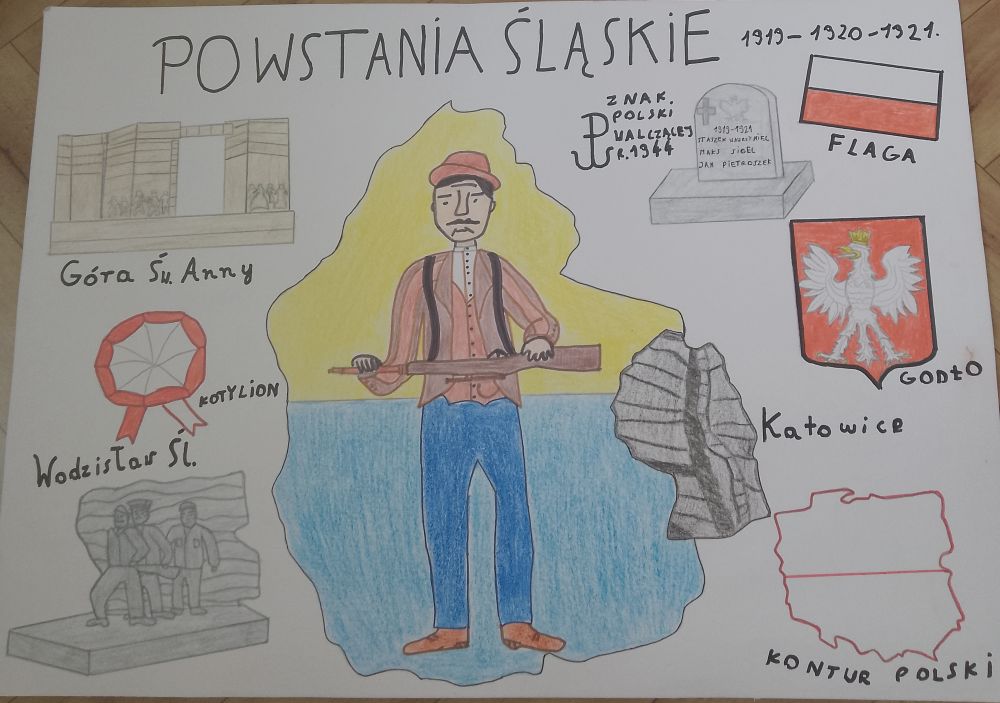 POWSTANIA ŚLĄSKIE
1919-1920-1921.
ZNAK.
POLSKI
WALCZĄCEJ
R.1944
1919-1921
MAKS SIGEL
JAN PIETROSZEK
FLAGA
Góra Św. Anny
KOTYLION
GODŁO
Katowice
Wodzisław Śl.
KONTUR POLSKI